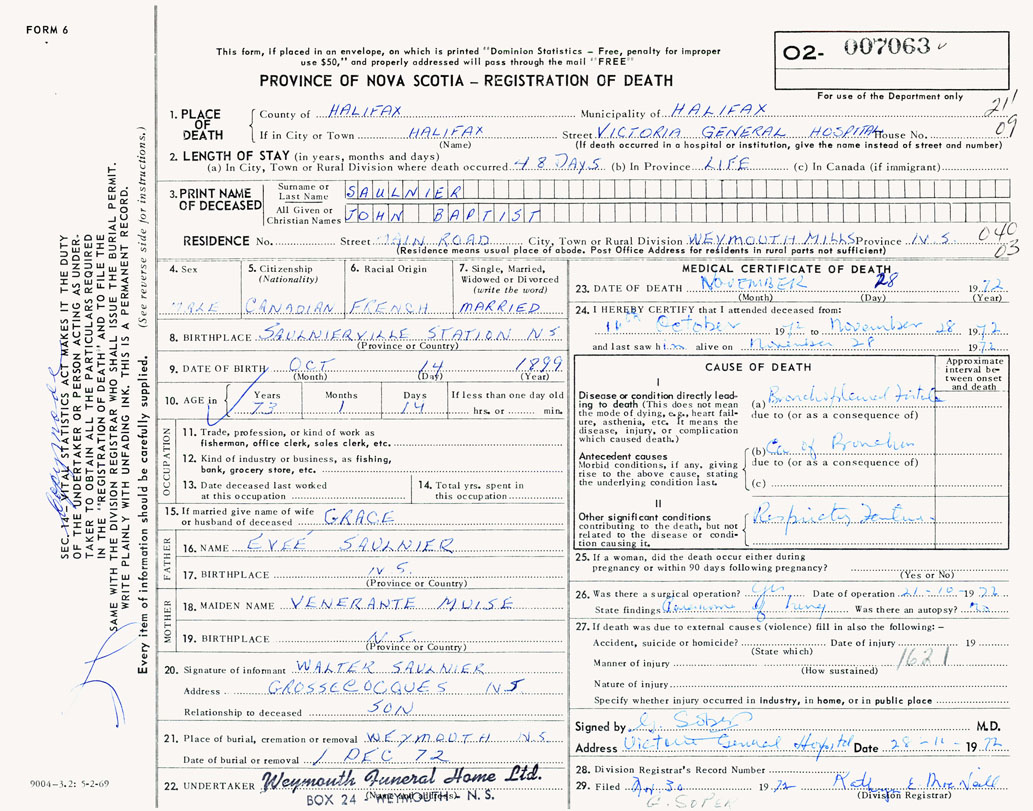 FORM 6
This form, if placed in an envelope, on which is printed "Dominion Statistics – Free, penalty for improper
use $50," and properly addressed will pass through the mail "FREE"
PROVINCE OF NOVA SCOTIA – REGISTRATION OF DEATH
O2- 007063
For use of the Department only
211
09
1. PLACE OF DEATH
County of HALIFAX Municipality of HALIFAX
If in City or Town HALIFAX Street VICTORIA GENERAL HOSPITAL House No.
(Name) (If death occurred in a hospital or institution, give the name instead of street and number)
2. LENGTH OF STAY (in years, months and days)
(a) In City, Town or Rural Division where death occurred 48 DAYS (b) In Province LIFE (c) In Canada (if immigrant)
3. PRINT NAME OF DECEASED
Surname or Last Name SAULNIER
All Given or Christian Names JOHN BAPTIST
RESIDENCE No. Street MAIN ROAD City, Town or Rural Division WEYMOUTH MILLS Province N.S.
(Residence means usual place of abode. Post Office Address for residents in rural parts not sufficient)
040
03
4. Sex
MALE
5. Citizenship
(Nationality)
CANADIAN
6. Racial Origin
FRENCH
7. Single, Married,
Widowed or Divorced
(write the word)
MARRIED
8. BIRTHPLACE SAULNIERVILLE STATION NS
(Province or Country)
9. DATE OF BIRTH OCT 14 1899
(Month) (Day) (Year)
10. AGE in Years Months Days If less than one day old
73 1 14 hrs. or min.
OCCUPATION
11. Trade, profession, or kind of work as
fisherman, office clerk, sales clerk, etc.
12. Kind of industry or business, as fishing,
bank, grocery store, etc.
13. Date deceased last worked
at this occupation
14. Total yrs. spent in
this occupation
15. If married give name of wife
or husband of deceased GRACE
FATHER
16. NAME EVEÉ SAULNIER
17. BIRTHPLACE N.S.
(Province or Country)
MOTHER
18. MAIDEN NAME VENERANTE MUISE
19. BIRTHPLACE N.S.
(Province or Country)
20. Signature of informant WALTER SAULNIER
Address GROSSECOCQUES NS
Relationship to deceased SON
21. Place of burial, cremation or removal WEYMOUTH N.S.
Date of burial or removal 1 DEC 72
22. UNDERTAKER Weymouth Funeral Home Ltd.
BOX 24 - WEYMOUTH - N. S.
MEDICAL CERTIFICATE OF DEATH
23. DATE OF DEATH NOVEMBER 28 1972
(Month) (Day) (Year)
24. I HEREBY CERTIFY that I attended deceased from:
October 1972 to November 28 1972
and last saw him alive on November 28 1972
CAUSE OF DEATH
Approximate
interval be-
tween onset
and death
I
Disease or condition directly lead-
ing to death (This does not mean
the mode of dying, e.g., heart fail-
ure, asthenia, etc. It means the
disease, injury, or complication
which caused death.)
(a) Bronchopleural Fistula
due to (or as a consequence of)
Antecedent causes
Morbid conditions, if any, giving
rise to the above cause, stating
the underlying condition last.
(b) Ca of Bronchus
due to (or as a consequence of)
(c)
II
Other significant conditions
contributing to the death, but not
related to the disease or condi-
tion causing it.
Respiratory Failure
25. If a woman, did the death occur either during
pregnancy or within 90 days following pregnancy?
(Yes or No)
26. Was there a surgical operation? Yes Date of operation 21-10-1972
State findings of Lung Was there an autopsy? No
27. If death was due to external causes (violence) fill in also the following: –
Accident, suicide or homicide? Date of injury 19
(State which)
Manner of injury 1621
(How sustained)
Nature of injury
Specify whether injury occurred in industry, in home, or in public place
Signed by G. Soper M.D.
Address Victoria General Hospital Date 28-11-1972
28. Division Registrar's Record Number
29. Filed Nov. 30 1972
(Division Registrar)
G. SOPER
SEC. 14 – VITAL STATISTICS ACT MAKES IT THE DUTY
OF THE UNDERTAKER OR PERSON ACTING AS UNDER-
TAKER TO OBTAIN ALL THE PARTICULARS REQUIRED
IN THE "REGISTRATION OF DEATH" AND TO FILE THE
SAME WITH THE DIVISION REGISTRAR WHO SHALL ISSUE THE BURIAL PERMIT.
WRITE PLAINLY WITH UNFADING INK. THIS IS A PERMANENT RECORD.
Every item of information should be carefully supplied. (See reverse side for instructions.)
9004-3.2: 5-2-69